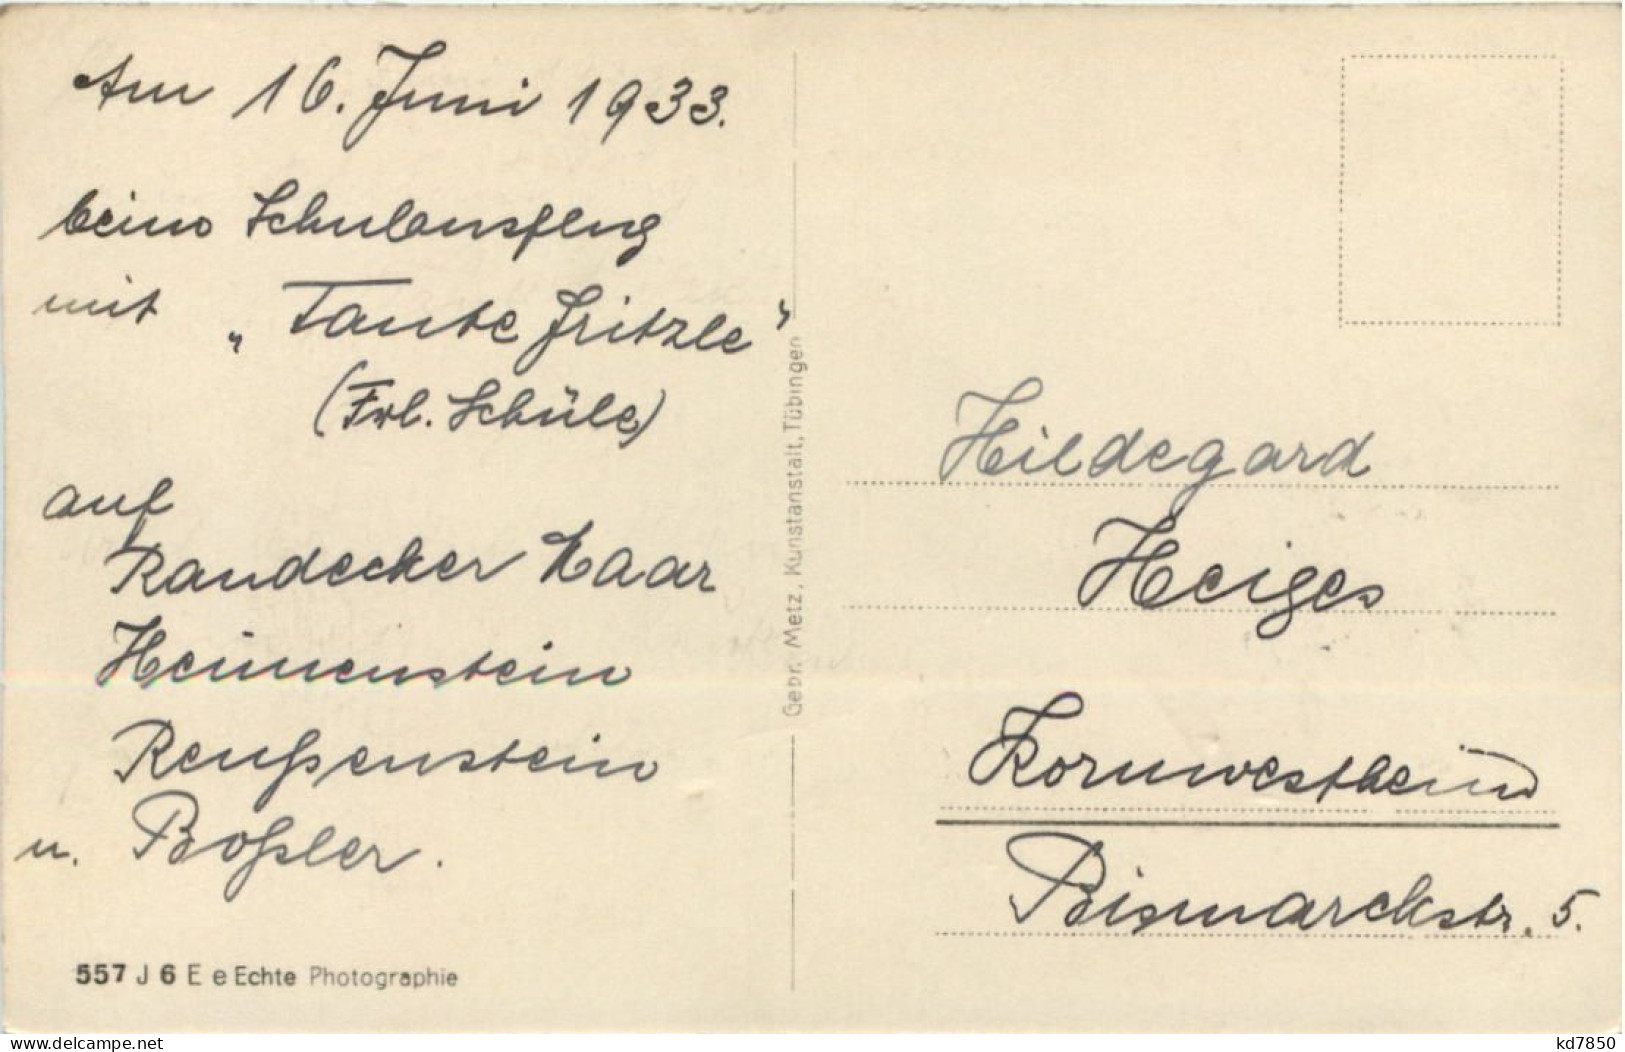 Am 16. Juni 1933.
beim Schulausflug
mit „Tante Fritzle"
(Frl. Schüle)
auf
Randecker Maar
Heimenstein
Reußenstein
u. Boßler.
557 J 6 E e Echte Photographie
Gebr. Metz, Kunstanstalt, Tübingen
Hildegard
Heiges
Kornwestheim
Bismarckstr. 5.
kd7850
www.delcampe.net